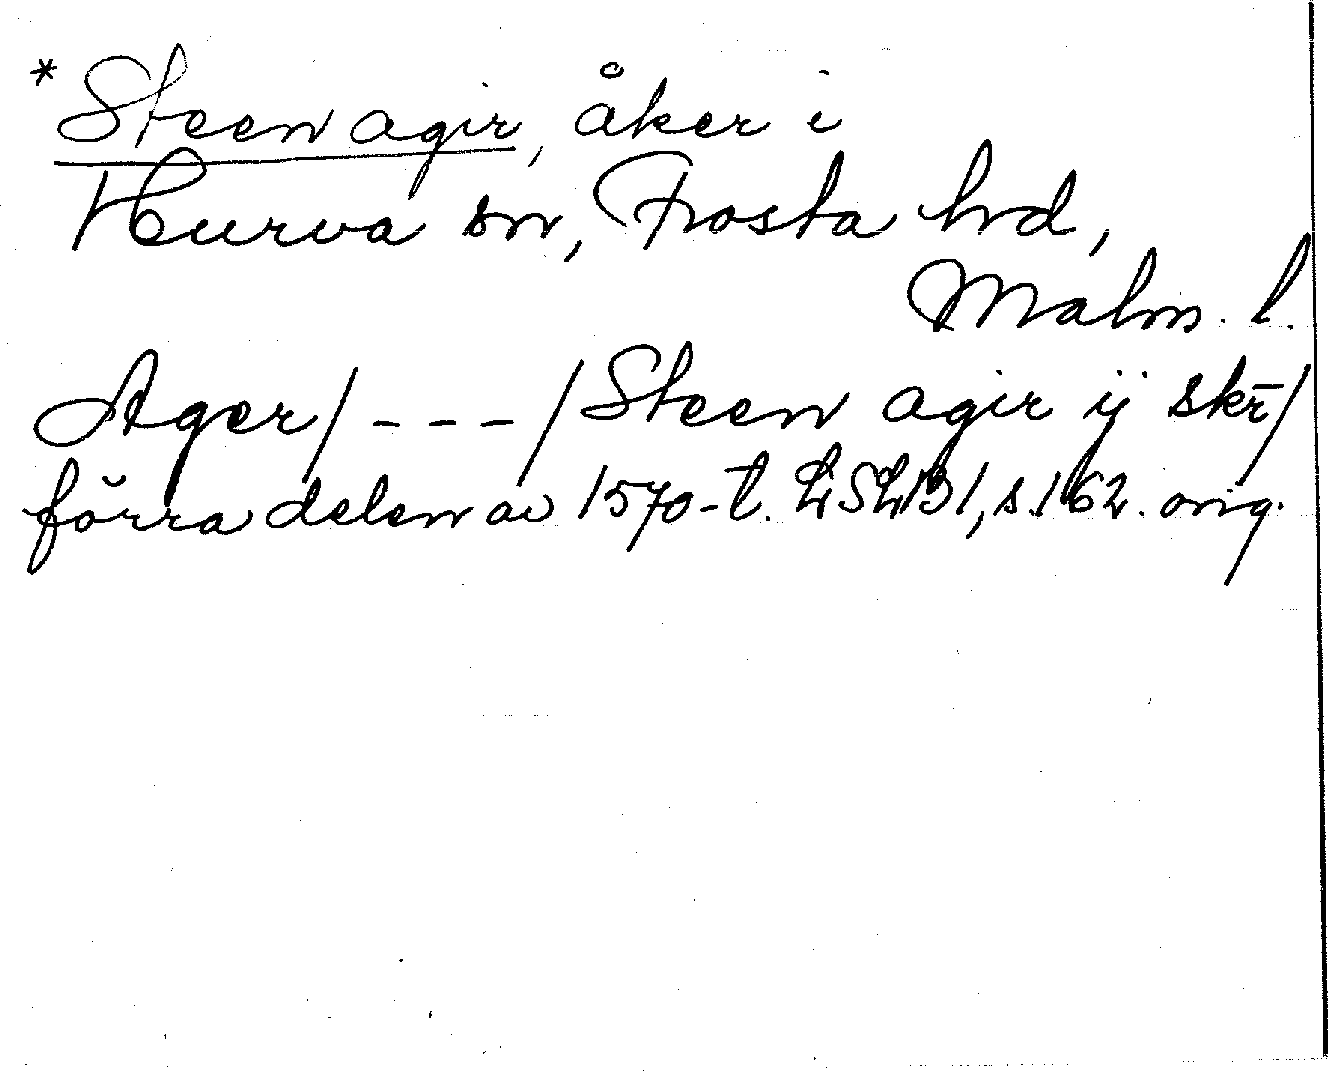 * Steen agir, åker i
Hurva sn, Frosta hrd,
Malm. l.
Ager/ - - - /Steen agir ij skr̄/
förra delen av 1570-t. LSLB1, s. 162. orig.